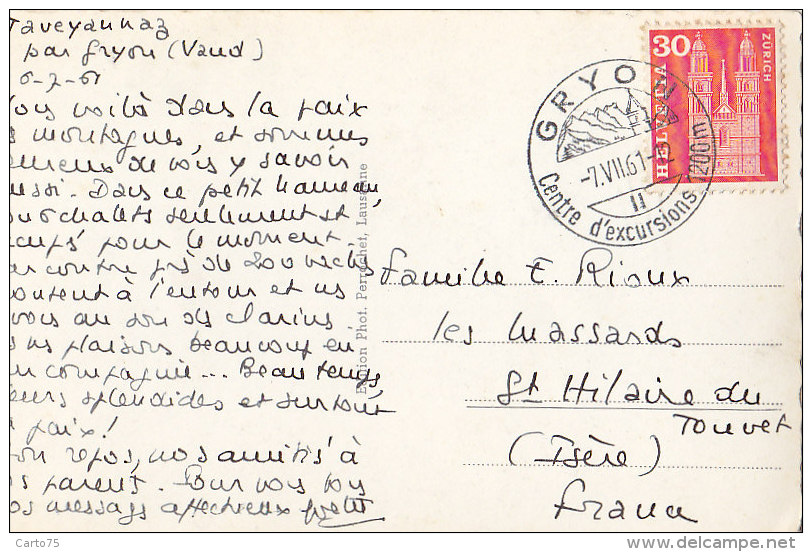 Taveyannaz
par Gryon (Vaud)
6-7-61
ous voilà dans la paix
s montagnes, et sommes
de vois y savoir
ussi. Dans ce petit hameau
chalets seulement et
pour le moment.
contre près de 200 vaches
à l'entour et us
au son des clarins
us plaisons beaucoup en
compagnie... Beau temps
eurs splendides et surtout
paix!
on repos, nos amitiés à
os parent. Pour vous tous
os messages affectueux
Edition Phot. Perrochet, Lausanne
HELVETIA
30
ZÜRICH
GRYON
-7.VII.61-
1200m
Centre d'excursions
Famille E. Rioux
les Massards
St Hilaire du
Touvet
(Isère)
France
© Carto75
http://www.delcampe.net